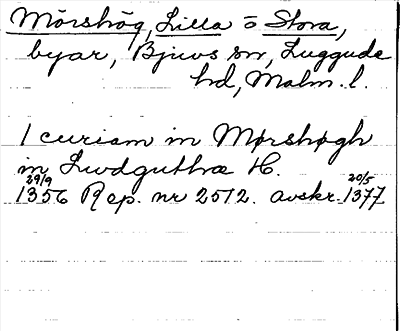 Mörshög, Lilla o Stora,
byar, Bjuvs sn, Luggude
hd, Malm. l.
1 curiam in Mørshøgh
in Lwdguthræ H.
29/9 20/5
1356 Rep. nr 2512. avskr. 1377